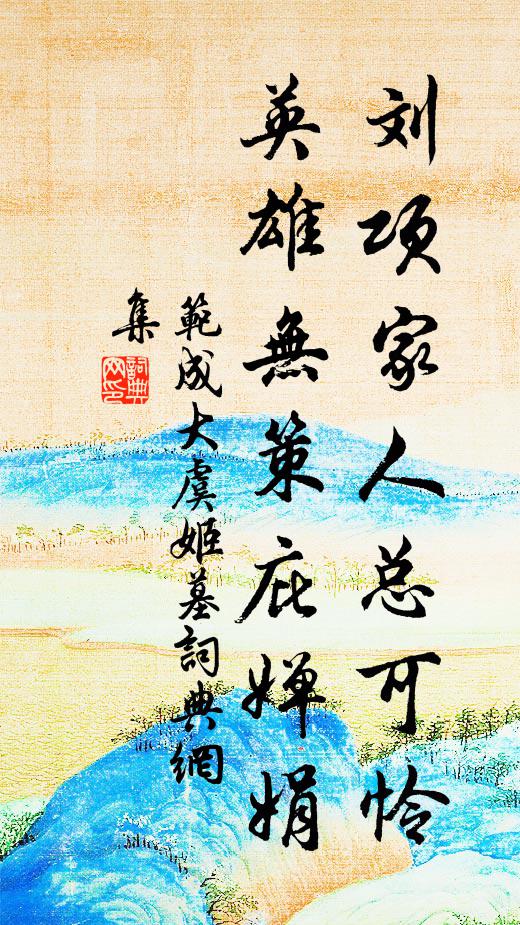 刘项家人总可怜
英雄無策庇婵娟
範成大虞姬墓詞典網
集
詞典網印